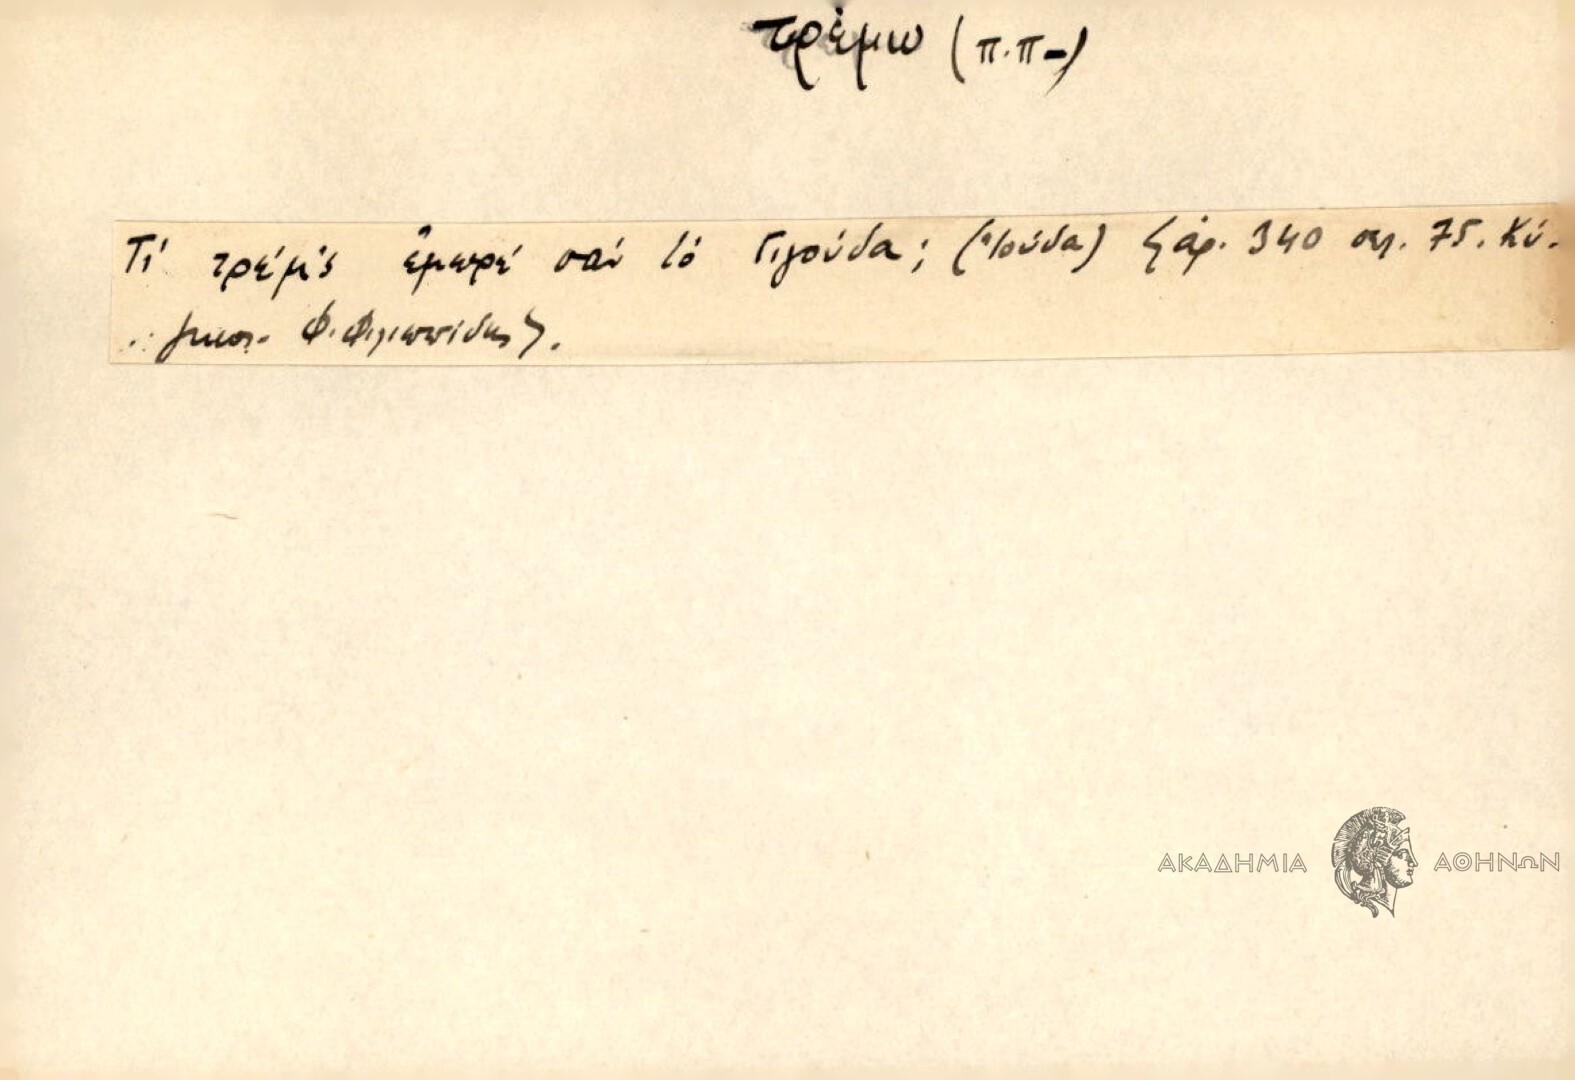 τρέμω (π.π-)
Τί τρέμ'ς ἔμωρέ σαν τό Γιγούδα; (Ἰούδα) {ἀρ. 340 σελ. 75. Κύ-
ζικος. Φ. Φιλιππίδης}.
ΑΚΑΔΗΜΙΑ ΑΘΗΝΩΝ